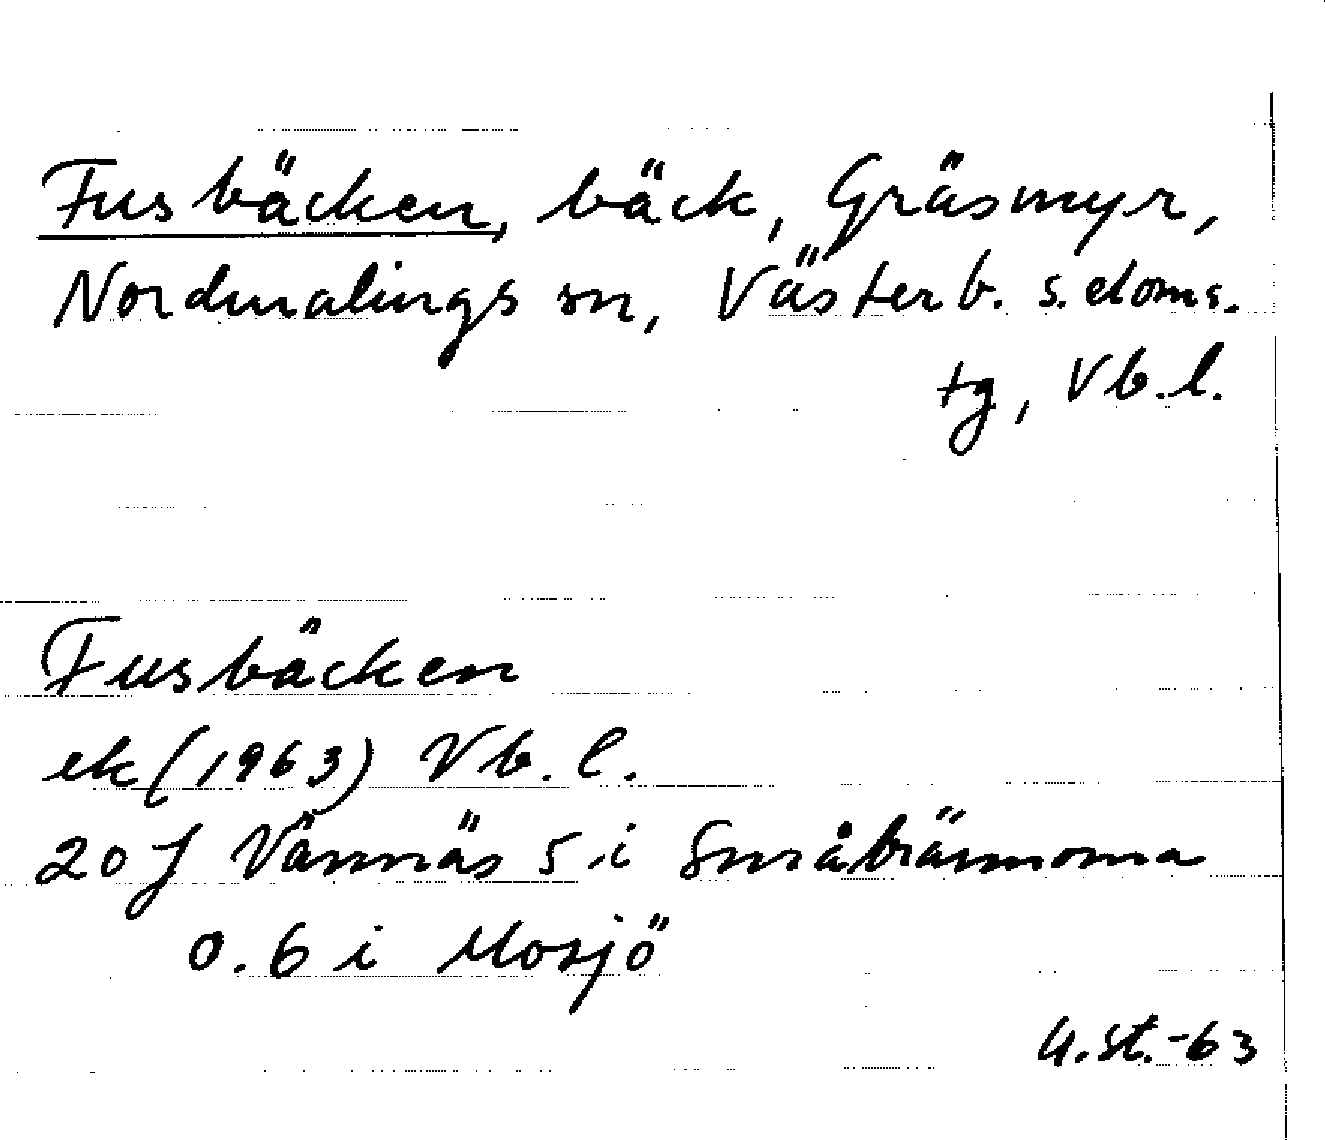 Fusbäcken, bäck, Gräsmyr,
Nordmalings sn, Västerb. s. doms.
tg, Vb.l.
Fusbäcken
ek (1963) Vb. l.
20 J Vännäs 5 i Småbrännorna
o. 6 i Mosjö
U.St.-63